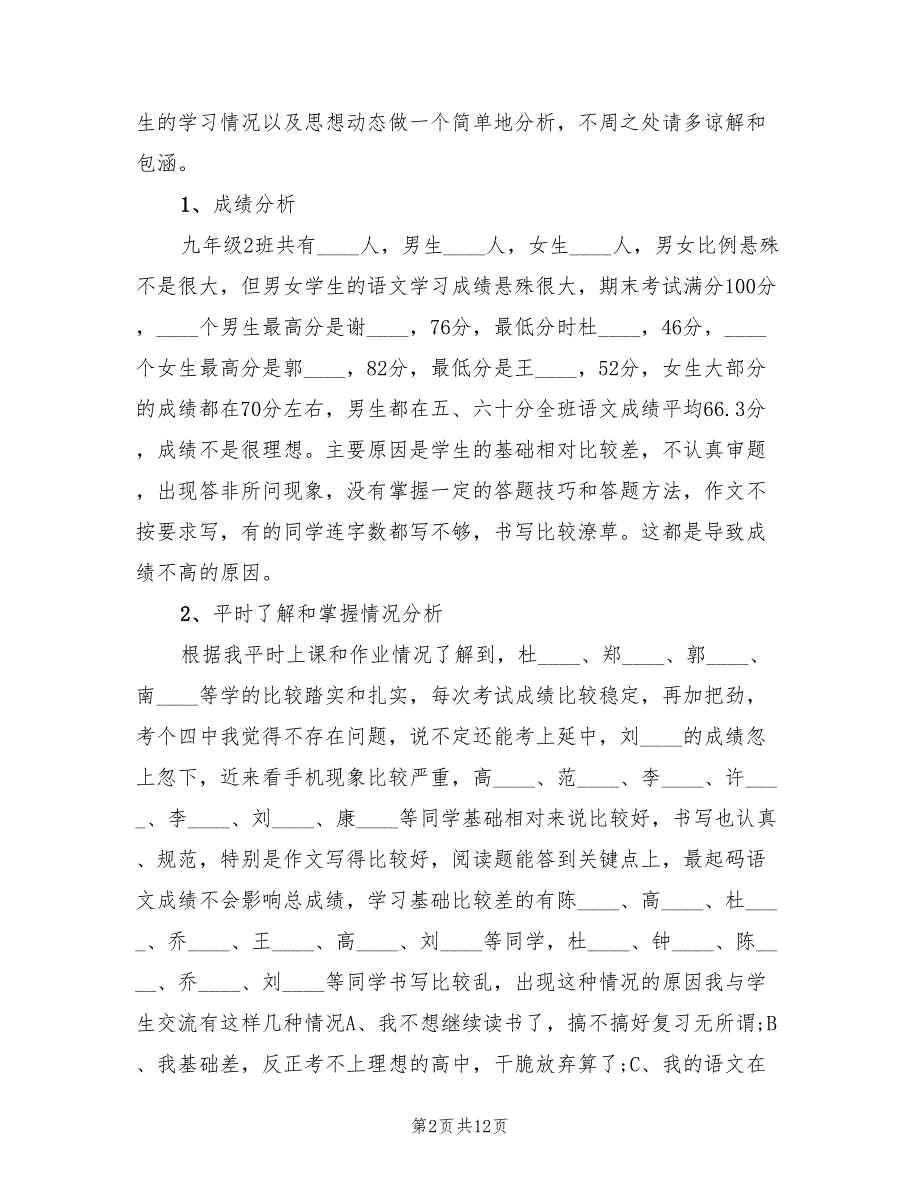 生的学习情况以及思想动态做一个简单地分析，不周之处请多谅解和
包涵。
1、成绩分析
九年级2班共有____人，男生____人，女生____人，男女比例悬殊
不是很大，但男女学生的语文学习成绩悬殊很大，期末考试满分100分
，____个男生最高分是谢____，76分，最低分时杜____，46分，____
个女生最高分是郭____，82分，最低分是王____，52分，女生大部分
的成绩都在70分左右，男生都在五、六十分全班语文成绩平均66.3分
，成绩不是很理想。主要原因是学生的基础相对比较差，不认真审题
，出现答非所问现象，没有掌握一定的答题技巧和答题方法，作文不
按要求写，有的同学连字数都写不够，书写比较潦草。这都是导致成
绩不高的原因。
2、平时了解和掌握情况分析
根据我平时上课和作业情况了解到，杜____、郑____、郭____、
南____等学的比较踏实和扎实，每次考试成绩比较稳定，再加把劲，
考个四中我觉得不存在问题，说不定还能考上延中，刘____的成绩忽
上忽下，近来看手机现象比较严重，高____、范____、李____、许___
_、李____、刘____、康____等同学基础相对来说比较好，书写也认真
、规范，特别是作文写得比较好，阅读题能答到关键点上，最起码语
文成绩不会影响总成绩，学习基础比较差的有陈____、高____、杜___
_、乔____、王____、高____、刘____等同学，杜____、钟____、陈__
__、乔____、刘____等同学书写比较乱，出现这种情况的原因我与学
生交流有这样几种情况A、我不想继续读书了，搞不搞好复习无所谓;B
、我基础差，反正考不上理想的高中，干脆放弃算了;C、我的语文在
第2页共12页